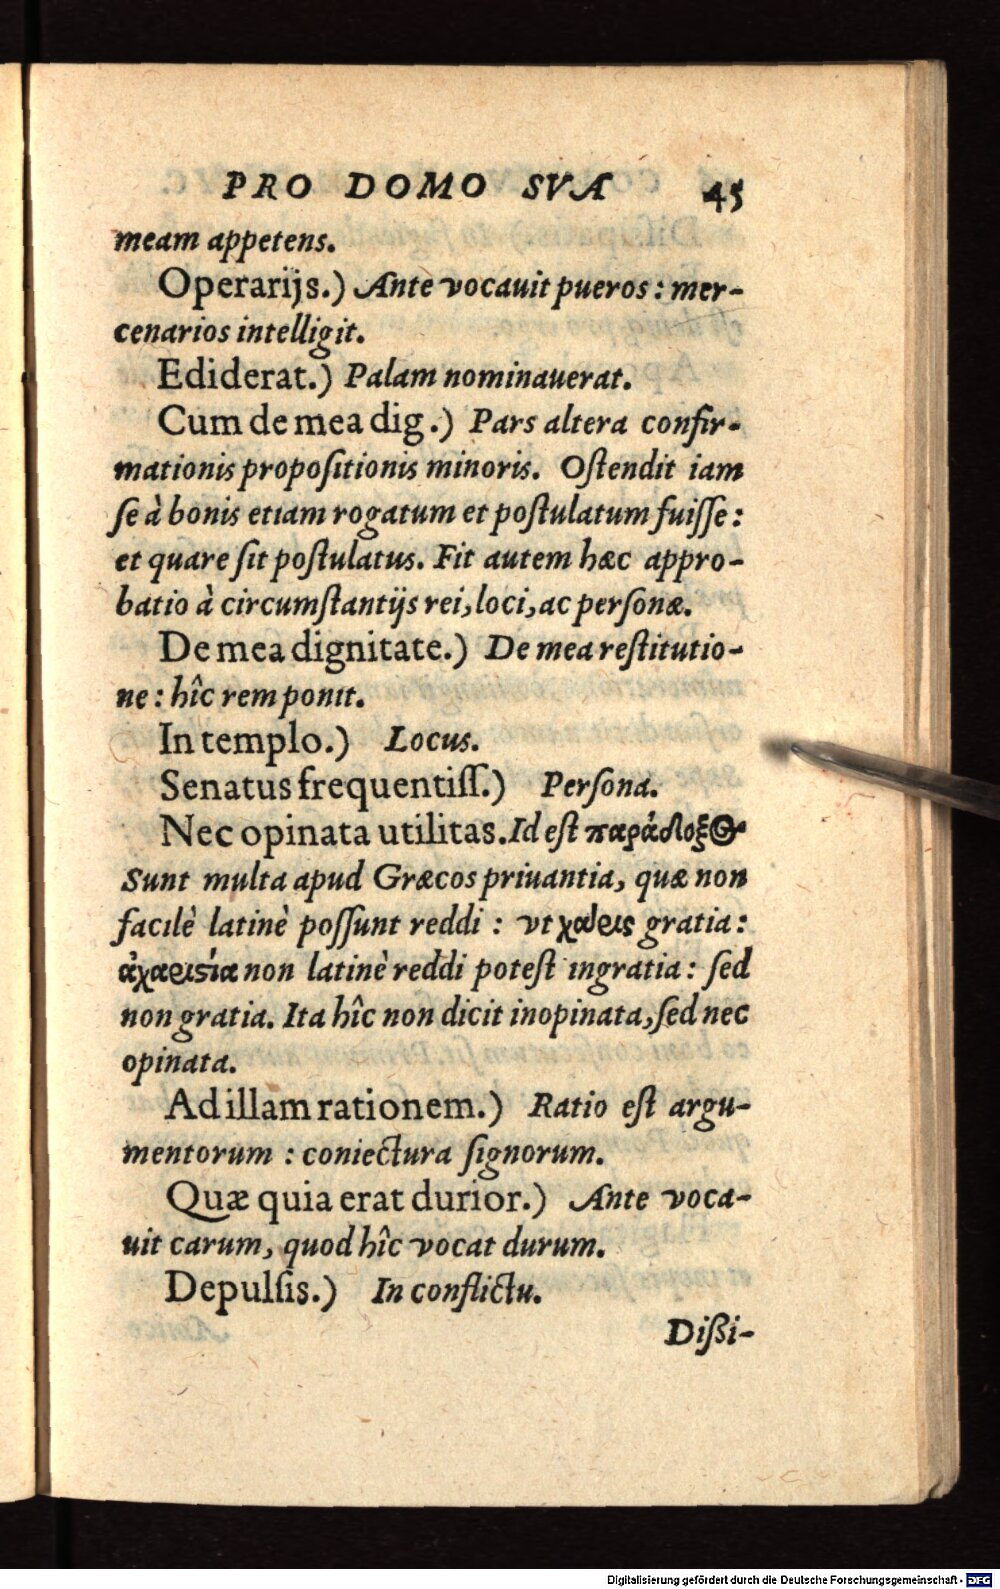 PRO DOMO SVA 45
meam appetens.
Operarijs.) Ante vocauit pueros: mer-
cenarios intelligit.
Ediderat.) Palam nominauerat.
Cum de mea dig.) Pars altera confir-
mationis propoſitionis minoris. Oſtendit iam
ſe à bonis etiam rogatum et poſtulatum fuiſſe:
et quare ſit poſtulatus. Fit autem hæc appro-
batio à circumſtantijs rei, loci, ac perſonæ.
De mea dignitate.) De mea reſtitutio-
ne: hîc rem ponit.
In templo.) Locus.
Senatus frequentiſſ.) Perſona.
Nec opinata utilitas. Id eſt παράδοξος
Sunt multa apud Græcos priuantia, quæ non
facilè latinè poſſunt reddi: vt χάρις gratia:
ἀχαριστία non latinè reddi poteſt ingratia: ſed
non gratia. Ita hîc non dicit inopinata, ſed nec
opinata.
Ad illam rationem.) Ratio eſt argu-
mentorum: coniectura ſignorum.
Quæ quia erat durior.) Ante voca-
uit carum, quod hîc vocat durum.
Depulſis.) In conflictu.
Dißi-
Digitalisierung gefördert durch die Deutsche Forschungsgemeinschaft - DFG